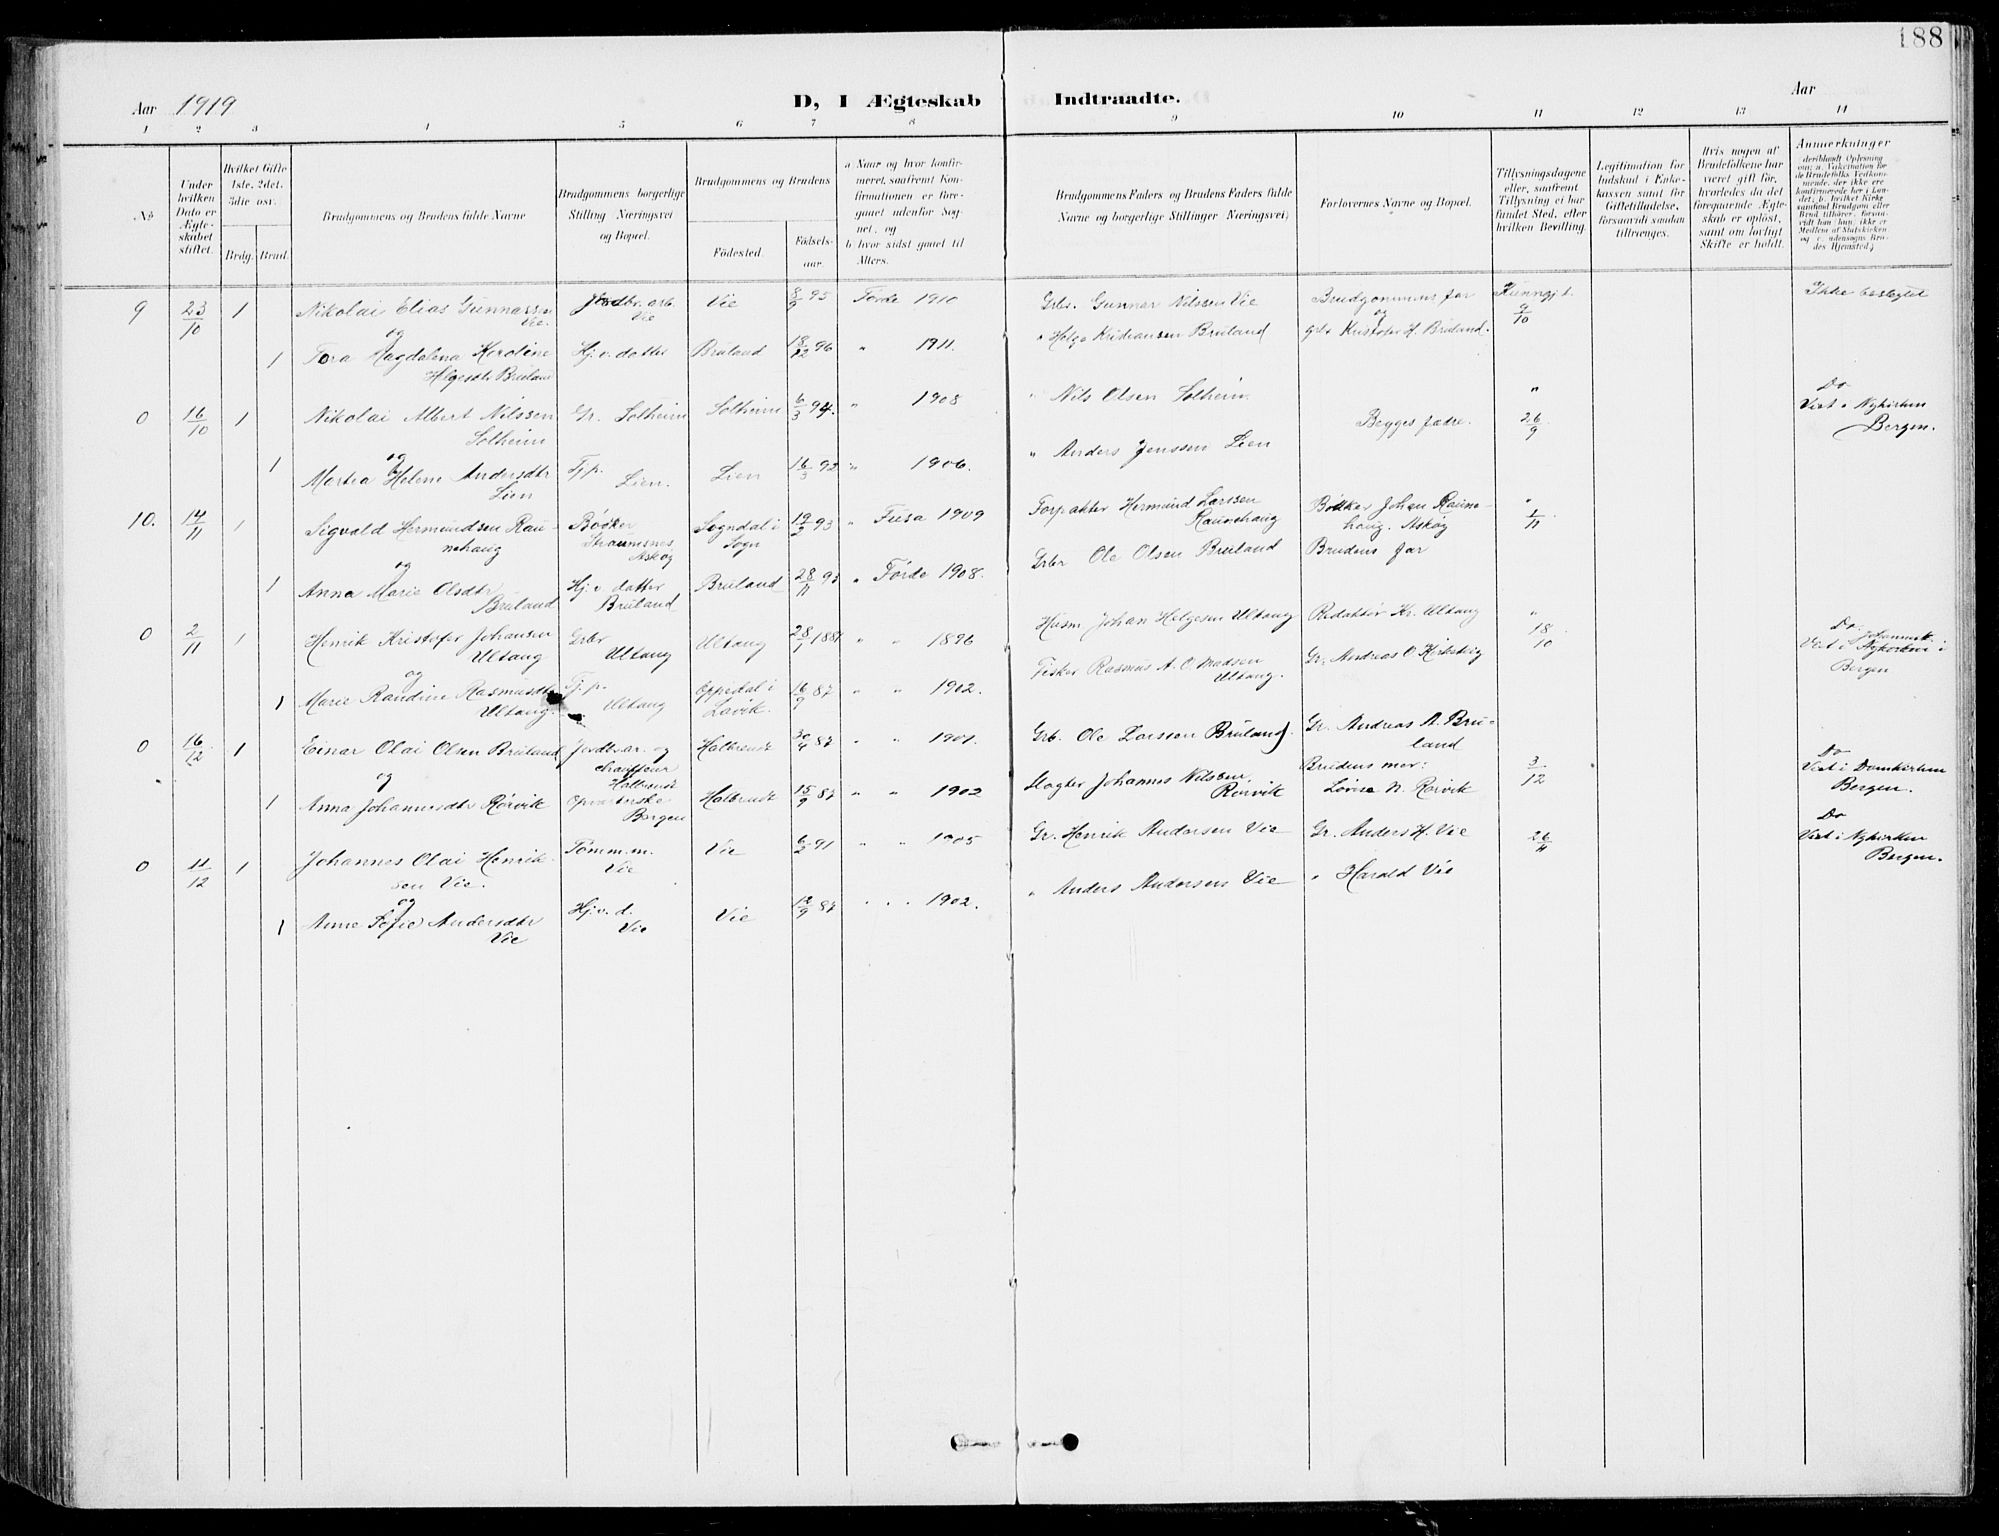 188
Aar 1919
D, I Ægteskab Indtraadte.
Aar
1 2 3 4 5 6 7 8 9 10 11 12 13 14
No
Under hvilken Dato er Ægteskabet stiftet.
Hvilket Gifte 1ste, 2det, 3die osv.
Brdg. Brud.
Brudgommens og Brudens fulde Navne
Brudgommens borgerlige Stilling Næringsvei og Bopæl.
Brudgommens og Brudens
Födested.
Födselsaar.
a Naar og hvor konfirmeret, saafremt Konfirmationen er foregaaet udenfor Sognet, og
b. hvor sidst gaaet til Alters.
Brudgommens Faders og Brudens Faders fulde Navne og borgerlige Stillinger Næringsvei;
Forlovernes Navne og Bopæl.
Tillysningsdagene eller, saafremt Tillysning ei har fundet Sted, efter hvilken Bevilling.
Legitimation for Indskud i Enkekassen samt for Giftetilladelse, forsaavidt saadan tiltrænges.
Hvis nogen af Brudefolkene har været gift för, hvorledes da det foregaaende Ægteskab er oplöst, samt om lovligt Skifte er holdt.
Anmerkninger
deriblandt Oplysning om: a. Vakcination for de Brudefolks Vedkommende, der ikke ere konfirmerede her i Landet; b. hvilket Kirkesamfund Brudgom eller Brud tilhörer, forsaavidt han hun, ikke er Medlem af Statskirken og c. udensogns Brudes Hjemsted;
9 23/10 1 Nikolai Elias Gunnarssn Vie. Jordbr. arb. Vie Vie 8/9 95 Förde 1910 Grbr. Gunnar Nilssen Vie Brudgommens far Kunngj. t. 9/10 Ikke beslegtet
og
1 Tora Magdalena Karoline Helgesdtr Bruland Hj. v. datter Bruland 18/12 96 " 1911. " Helge Kristiansen Bruland og grbr Kristofer H. Bruland.
0 16/10 1 Nikolai Albert Nilssen Solheim Gr. Solheim Solheim 6/3 94. " 1908 " Nils Olsen Solheim. Begges fædre. " 26/9 Do Viet i Nykirken Bergen.
og
1 Martea Helene Andersdtr Lien Tj. p. Lien. Lien 16/3 92 " 1906. " Anders Jenssen Lien
10. 14/11 1 Sigvald Hermundsen Raunehaug Böcker Straumsnes Askøy Sogndal i Sogn 19/2 93 " Fusa 1909 Forpakter Hermund Larssen Raunehaug Bøkker Johan Raunehaug. Askøy " 1/11
og
1 Anna Marie Olsdtr Bruland Hj. v. datter Bruland Bruland 28/11 93 " Förde 1908. Grbr Ole Olsen Bruland Brudens far
0 2/11 1 Henrik Kristofer Johansen Ultang Grbr Ultang Ultang 28/1 1881 " " 1896 Husm Johan Helgesen Ultang Redaktør Kr. Ultang " 18/10 Do. Viet i Johannesk. Nykirken i Bergen
og
1 Marie Randine Rasmusdtr Ultang. Tj. p. Ultang Oppedal i Lavik. 16/9 87 " " 1902. Fisker Rasmus A. O. Madsen Ultang. Gr. Andreas O. Kirkeleig
0 16/12 1 Einar Olai Olsen Bruland Jordbr. ar. og chauffeur Halbrendt Halbrendt 30/4 87 " " 1901. Grb. Ole Larssen Bruland. Gr. Andreas A. Bruland 3/12 Do Viet i Domkirken Bergen.
og
1 Anna Johannesdtr Rørvik Opvarterske Bergen Halbrendt 15/9 87 " " 1902 Slagter Johannes Nilssen Rørvik Brudens mor: Lovise N. Rørvik
0 11/12 1 Johannes Olai Henriksen Vie. Tømm.m. Vie Vie 6/2 91 " " 1905 Gr. Henrik Andersen Vie Gr. Anders H. Vie 26/11 Do Viet i Nykirken Bergen.
og
1 Anne Sofie Andersdtr Vie Hj. v. d. Vie Vie 12/9 87 " " 1902. " Anders Andersen Vie " Harald Vie